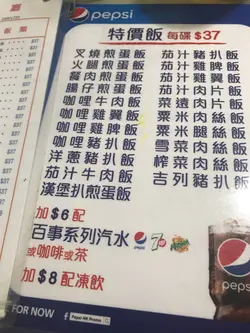 pepsi
特價飯 每碟 $37
叉燒煎蛋飯
火腿煎蛋飯
餐肉煎蛋飯
腸仔煎蛋飯
咖哩牛肉飯
咖哩雞翼飯
咖哩雞脾飯
咖哩豬扒飯
洋蔥豬扒飯
茄汁牛肉飯
漢堡扒煎蛋飯
茄汁豬扒飯
茄汁雞脾飯
茄汁雞翼飯
茄汁肉片飯
菜遠肉片飯
粟米肉絲飯
粟米腿絲飯
雪菜肉絲飯
榨菜肉絲飯
吉列豬扒飯
加 $6 配
百事系列汽水
或咖啡或茶
加 $8 配凍飲
pepsi
FOR NOW
Pepsi HK Promo